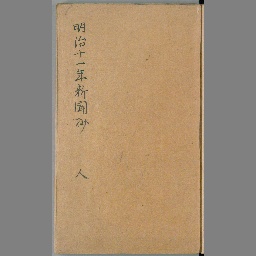 明治十一年新聞抄 人